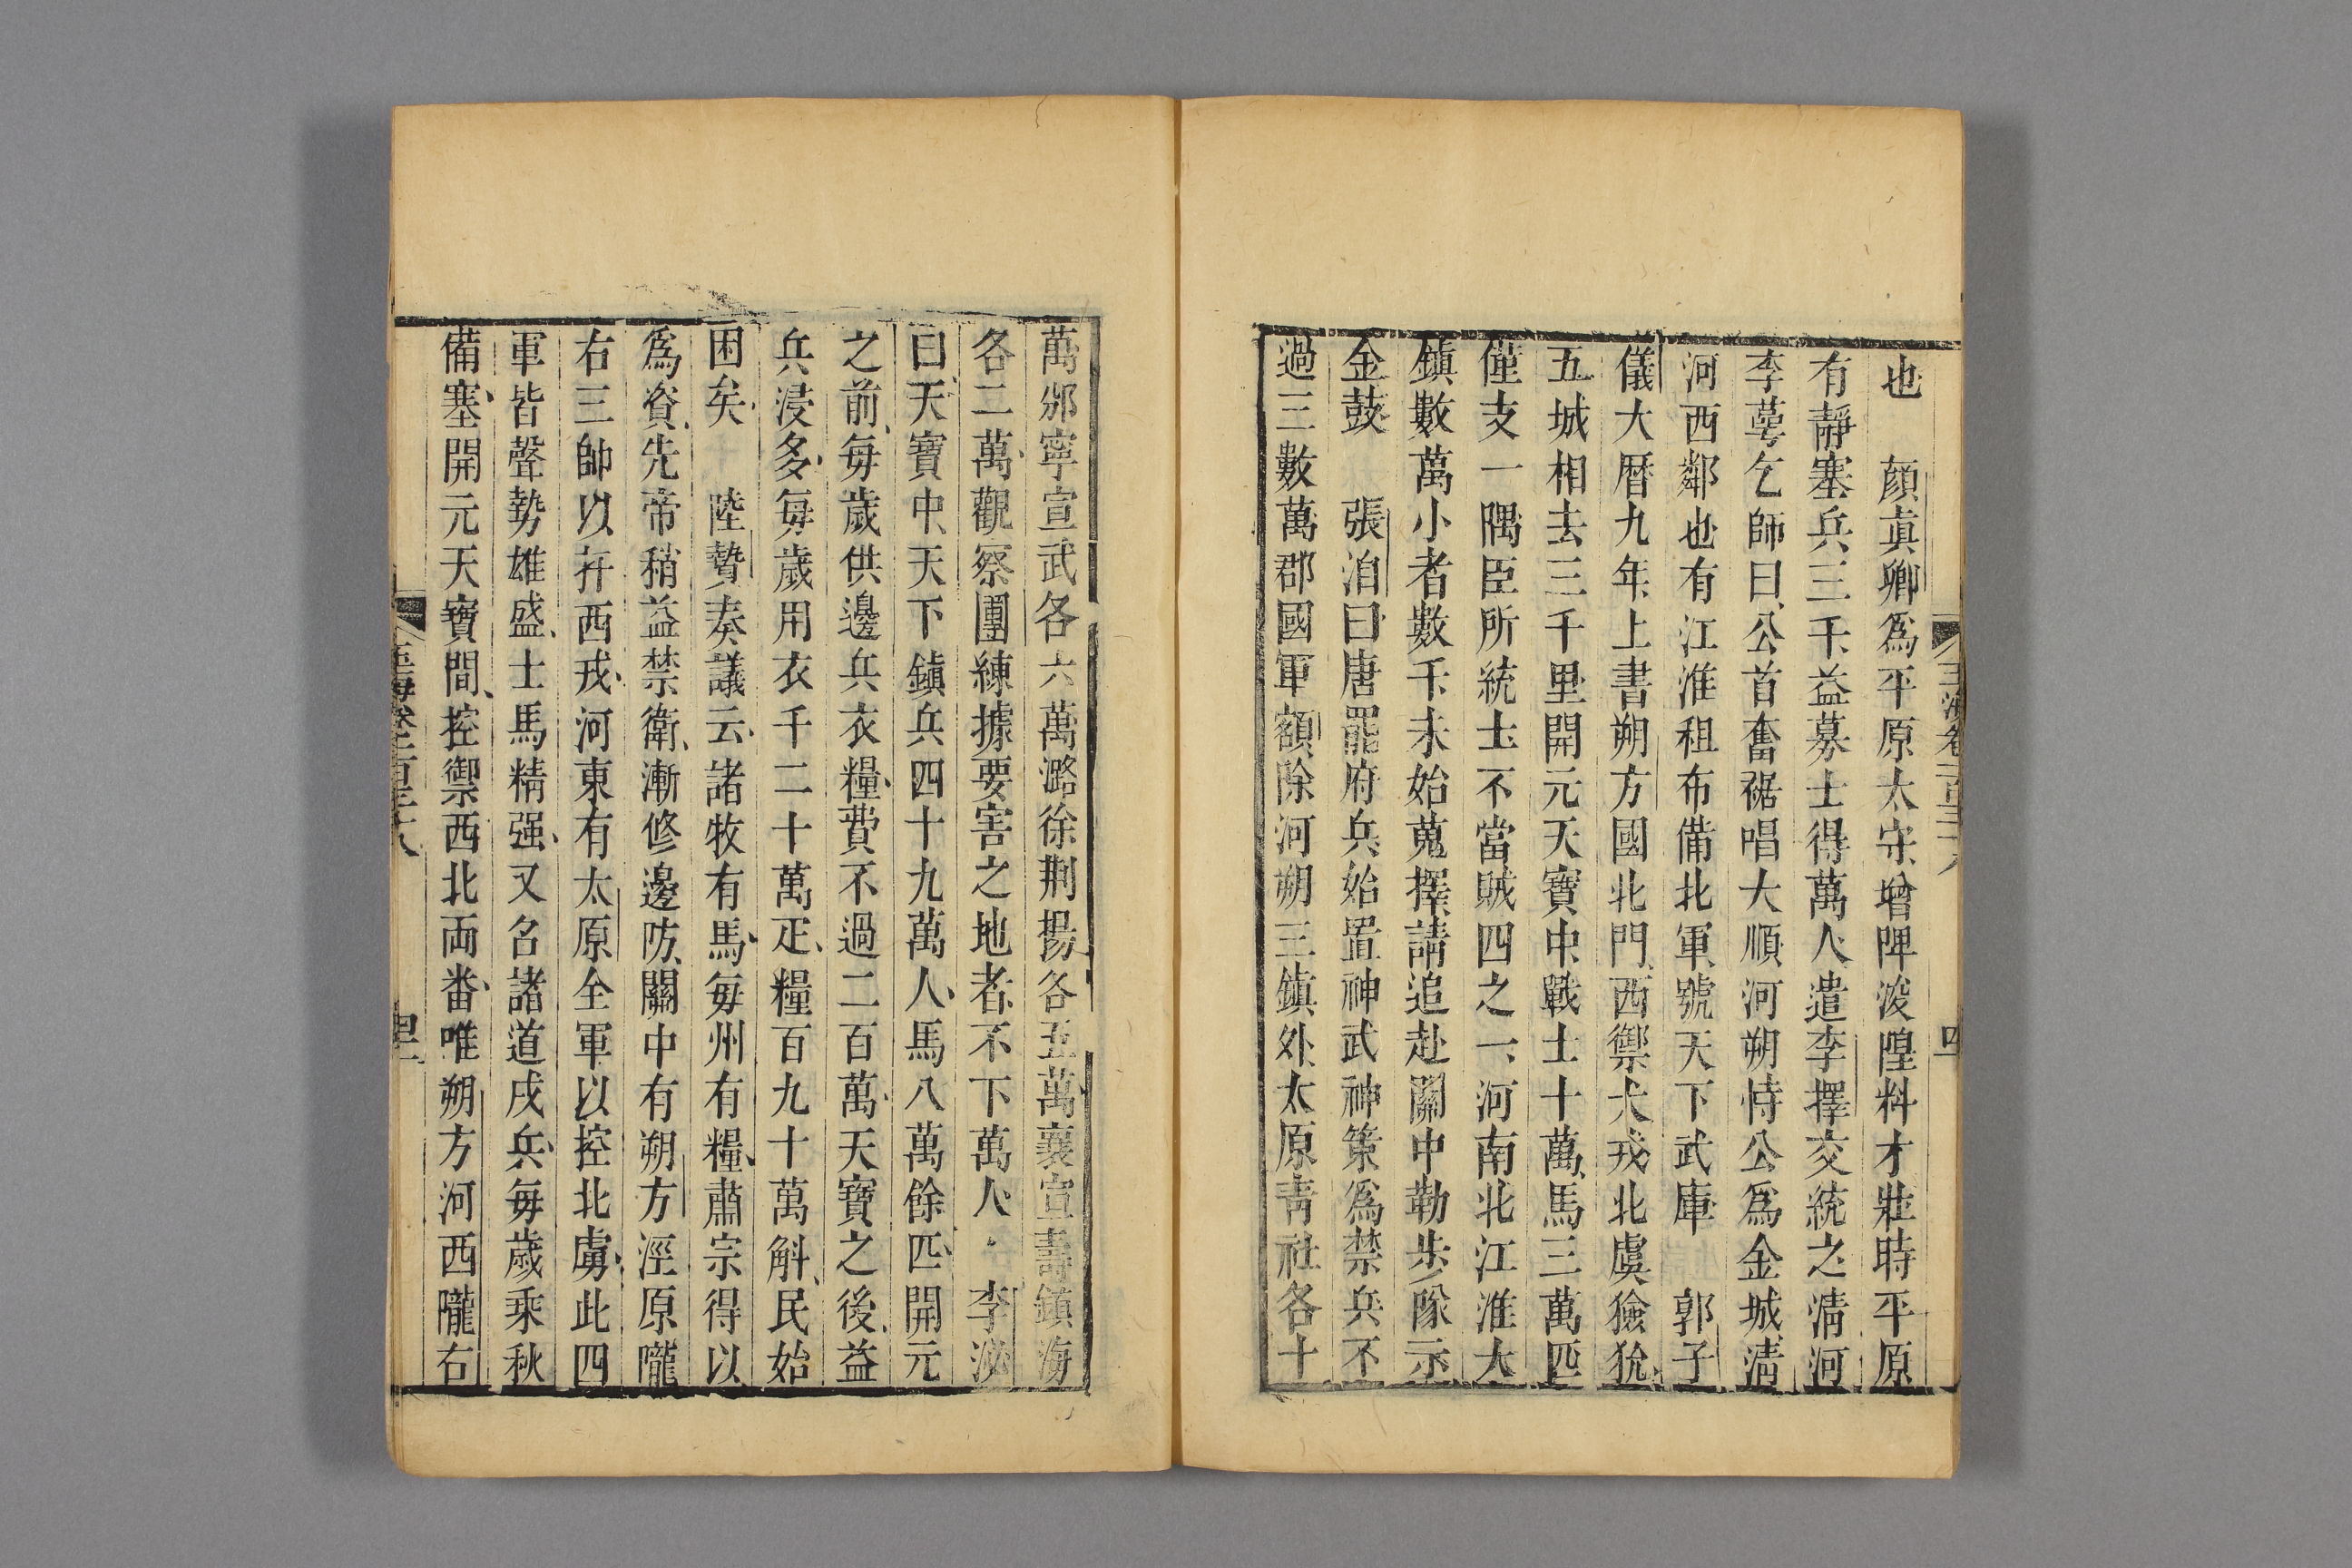 也　顏真卿為平原太守增陴浚隍料才壯時平原
有靜塞兵三千益募士得萬人遣李擇交統之清河
李萼乞師曰公首奮裾唱大順河朔恃公為金城清
河西鄰也有江淮租布備北軍號天下武庫　郭子
儀大曆九年上書朔方國北門西禦犬戎北虞獫狁
五城相去三千里開元天寶中戰士十萬馬三萬匹
僅支一隅臣所統士不當賊四之一河南北江淮大
鎮數萬小者數千未始蒐擇請追赴關中勒步隊示
金鼓　張洎曰唐罷府兵始置神武神策為禁兵不
過三數萬郡國軍額除河朔三鎮外太原青社各十
玉海卷一百三十八
四
萬邠寧宣武各六萬潞徐荆揚各五萬襄宣壽鎮海
各二萬觀察團練據要害之地者不下萬人　李泌
曰天寶中天下鎮兵四十九萬人馬八萬餘匹開元
之前每歲供邊兵衣糧費不過二百萬天寶之後益
兵浸多每歲用衣千二十萬疋糧百九十萬斛民始
困矣　陸贄奏議云諸牧有馬每州有糧肅宗得以
為資先帝稍益禁衛漸修邊防關中有朔方涇原隴
右三帥以扞西戎河東有太原全軍以控北虜此四
軍皆聲勢雄盛士馬精强又名諸道戍兵每歲乘秋
備塞開元天寶間控禦西北兩番唯朔方河西隴右
玉海卷一百三十八